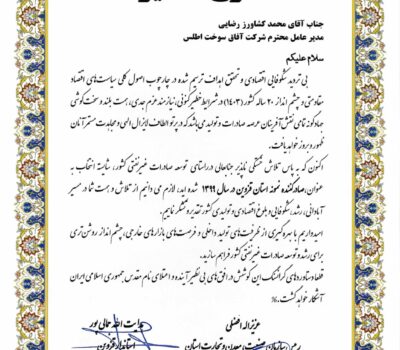 جناب آقای محمد کشاورز رضایی
مدیر عامل محترم شرکت آفاق سوخت اطلس
سلام علیکم
بی تردید شکوفایی اقتصادی و تحقق اهداف ترسیم شده در چارچوب اصول کلی سیاست‌های اقتصاد
مقاومتی و چشم انداز ۲۰ ساله کشور (۱۴۰۴) در شرایط خطیر کنونی، نیازمند عزم جدی، همت بلند و سخت کوشی
جهادگونه‌ی نقش آفرینان عرصه صادرات و تولید می‌باشد که در پرتو الطاف لایزال الهی و مجاهدت مستمر آنان
ظهور و بروز خواهد یافت.
اکنون که به پاس تلاش خستگی ناپذیر جنابعالی در راستای توسعه صادرات غیرنفتی کشور، شایسته انتخاب به
عنوان صادرکننده نمونه استان قزوین در سال ۱۳۹۹ شده اید، لازم می دانیم از تلاش و همت شما در مسیر
آبادانی، رشد، شکوفایی و بلوغ اقتصادی و تولیدی کشور تقدیر و تشکر نماییم.
امیدواریم با بهره گیری از ظرفیت‌های تولید داخلی و فرصت‌های بازارهای خارجی، چشم انداز روشن تری
برای رشد و توسعه صادرات غیرنفتی کشور فراهم سازید.
قطعا دستاوردهای گرانسنگ این کوشش در افق‌های بی نظیر آینده و اعتلای نام مقدس جمهوری اسلامی ایران
آشکار خواهد گشت.٪
عزیزاله افضلی
سازمان صنعت، معدن و تجارت استان
هدایت اله جمالی پور
استاندار قزوین